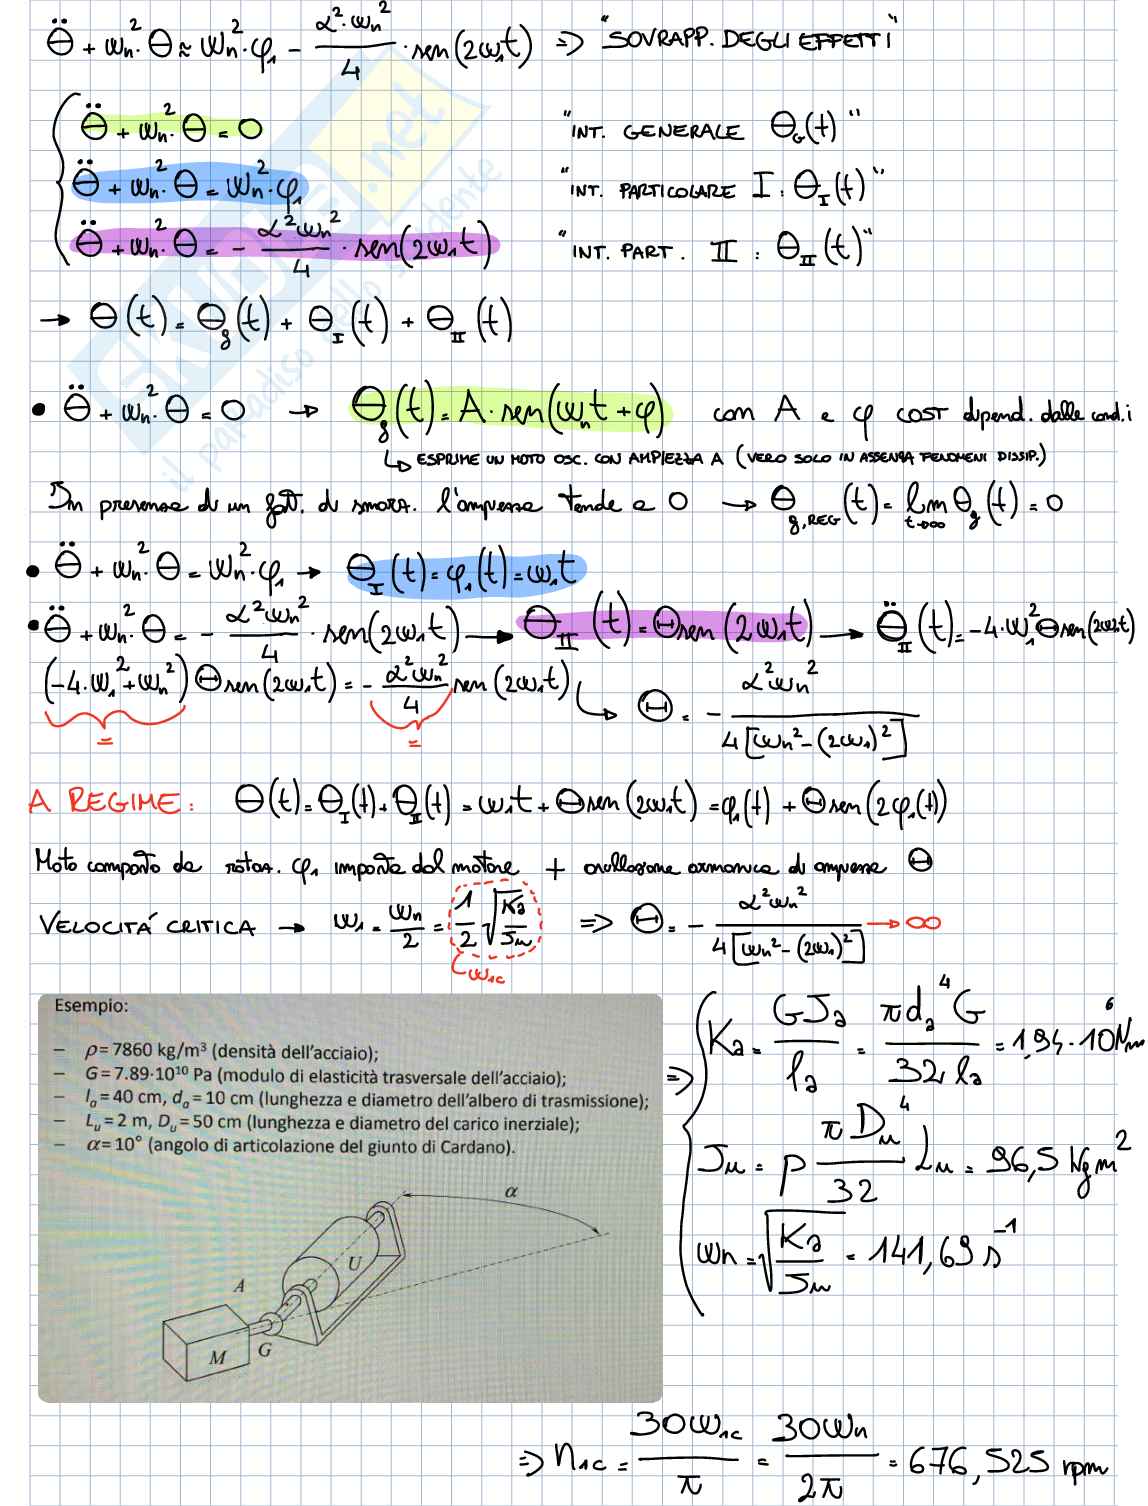 θ̈ + ωn²·θ ≈ ωn²·φ₁ - α²·ωn²/4 · sen(2ω₁t) => "SOVRAPP. DEGLI EFFETTI"
θ̈ + ωn²·θ = 0 "INT. GENERALE θG(t)"
θ̈ + ωn²·θ = ωn²·φ₁ "INT. PARTICOLARE I : θI(t)"
θ̈ + ωn²·θ = - α²ωn²/4 · sen(2ω₁t) "INT. PART. II : θII(t)"
→ θ(t) = θg(t) + θI(t) + θII(t)
• θ̈ + ωn²·θ = 0 → θg(t) = A·sen(ωnt + φ) com A e φ COST dipend. dalle cond.i
↳ ESPRIME UN MOTO OSC. CON AMPIEZZA A (VERO SOLO IN ASSENZA FENOMENI DISSIP.)
In presenza di un fatt. di smorz. l'ampiezza tende a 0 → θg,REG(t) = lim t→∞ θg(t) = 0
• θ̈ + ωn²·θ = ωn²·φ₁ → θI(t) = φ₁(t) = ω₁t
• θ̈ + ωn²·θ = - α²ωn²/4 · sen(2ω₁t) → θII(t) = Θsen(2ω₁t) → θ̈II(t) = -4·ω₁²Θsen(2ω₁t)
(-4·ω₁² + ωn²)Θsen(2ω₁t) = - α²ωn²/4 sen(2ω₁t) ↳ Θ = - α²ωn²/4[ωn² - (2ω₁)²]
= =
A REGIME: θ(t) = θI(t) + θII(t) = ω₁t + Θsen(2ω₁t) = φ₁(t) + Θsen(2φ₁(t))
Moto composto da rotaz. φ₁ imposta dal motore + oscillazione armonica di ampiezza Θ
VELOCITÁ CRITICA → ω₁ = ωn/2 = 1/2 √(Ka/Ju) => Θ = - α²ωn²/4[ωn² - (2ω₁)²] → ∞
ω₁c
Esempio:
– ρ= 7860 kg/m³ (densità dell'acciaio);
– G= 7.89·10¹⁰ Pa (modulo di elasticità trasversale dell'acciaio);
– lₐ= 40 cm, dₐ= 10 cm (lunghezza e diametro dell'albero di trasmissione);
– Lᵤ= 2 m, Dᵤ= 50 cm (lunghezza e diametro del carico inerziale);
– α= 10° (angolo di articolazione del giunto di Cardano).
α
U
A
G
M
=> Ka = GJa/la = πda⁴G/32la = 1,94·10⁶Nm
Ju = ρ πDu⁴/32 Lu = 96,5 kgm²
ωn = √(Ka/Ju) = 141,69 s⁻¹
=> n₁c = 30ω₁c/π = 30ωn/2π = 676,525 rpm
SKUOLA.net
il paradiso dello studente